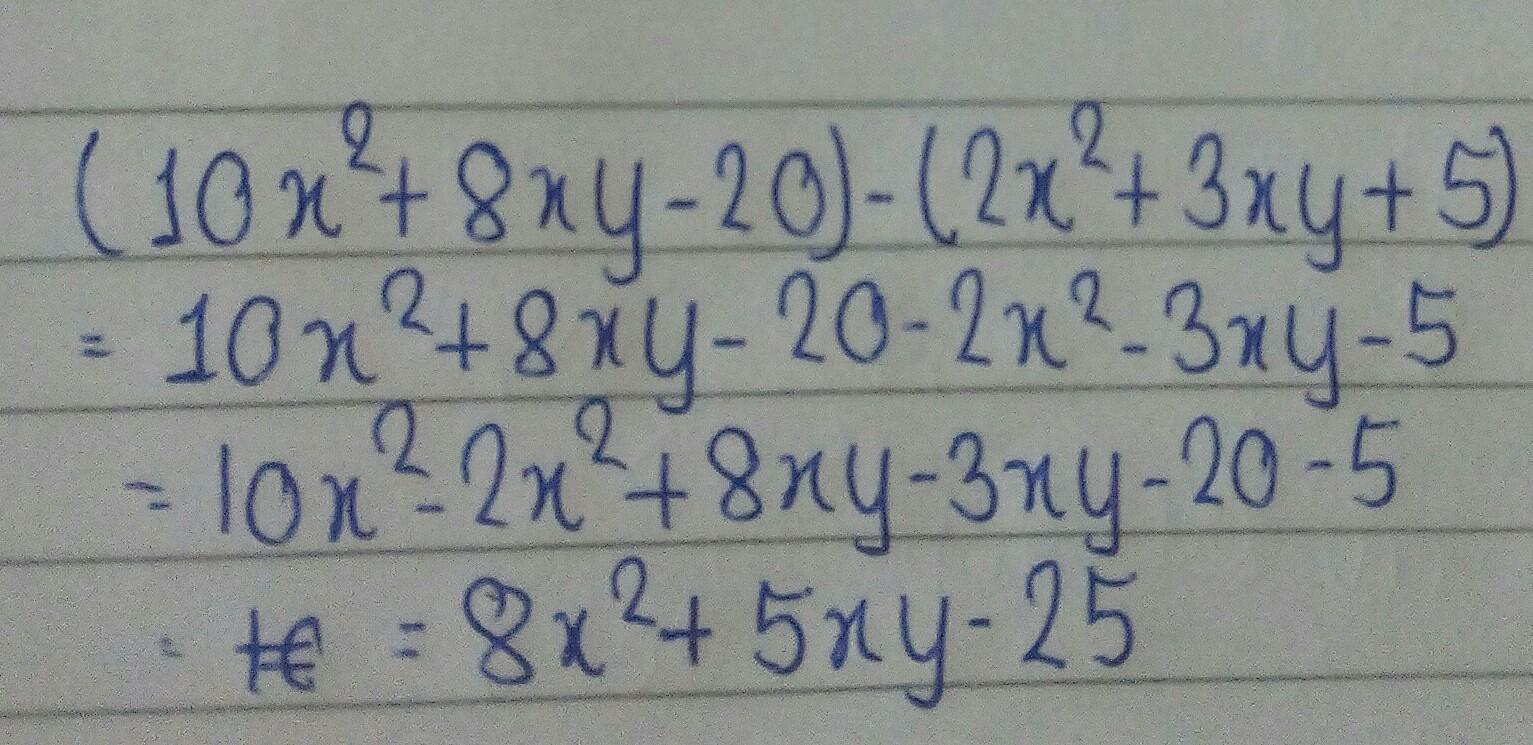 (10x²+8xy-20)-(2x²+3xy+5)
= 10x²+8xy-20-2x²-3xy-5
= 10x²-2x²+8xy-3xy-20-5
= 8x²+5xy-25